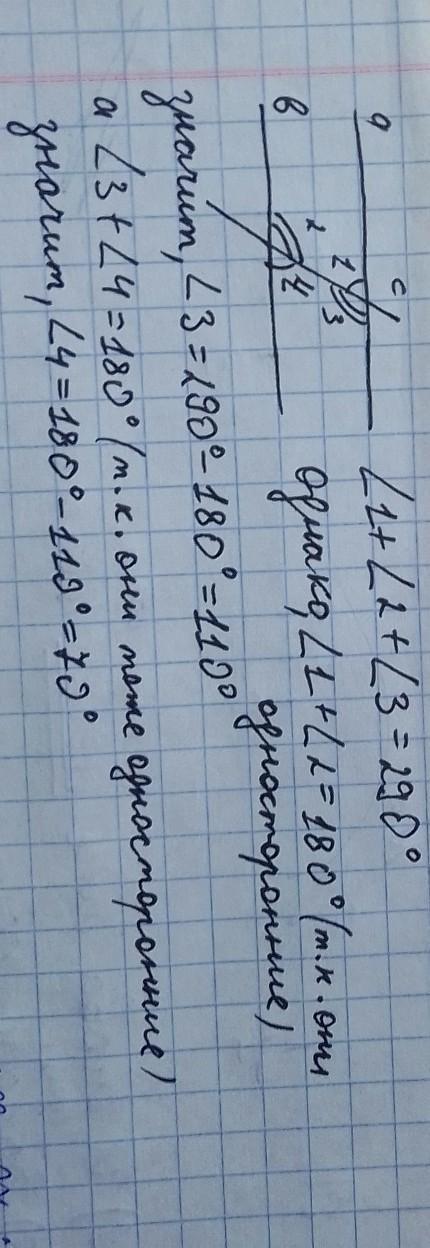 a
c
1
3
2
4
в
∠1+∠2+∠3=290°
Однако, ∠1+∠2=180° (т.к. они
односторонние)
значит, ∠3=290°-180°=110°
а ∠3+∠4=180° (т.к. они тоже односторонние)
значит, ∠4=180°-110°=70°